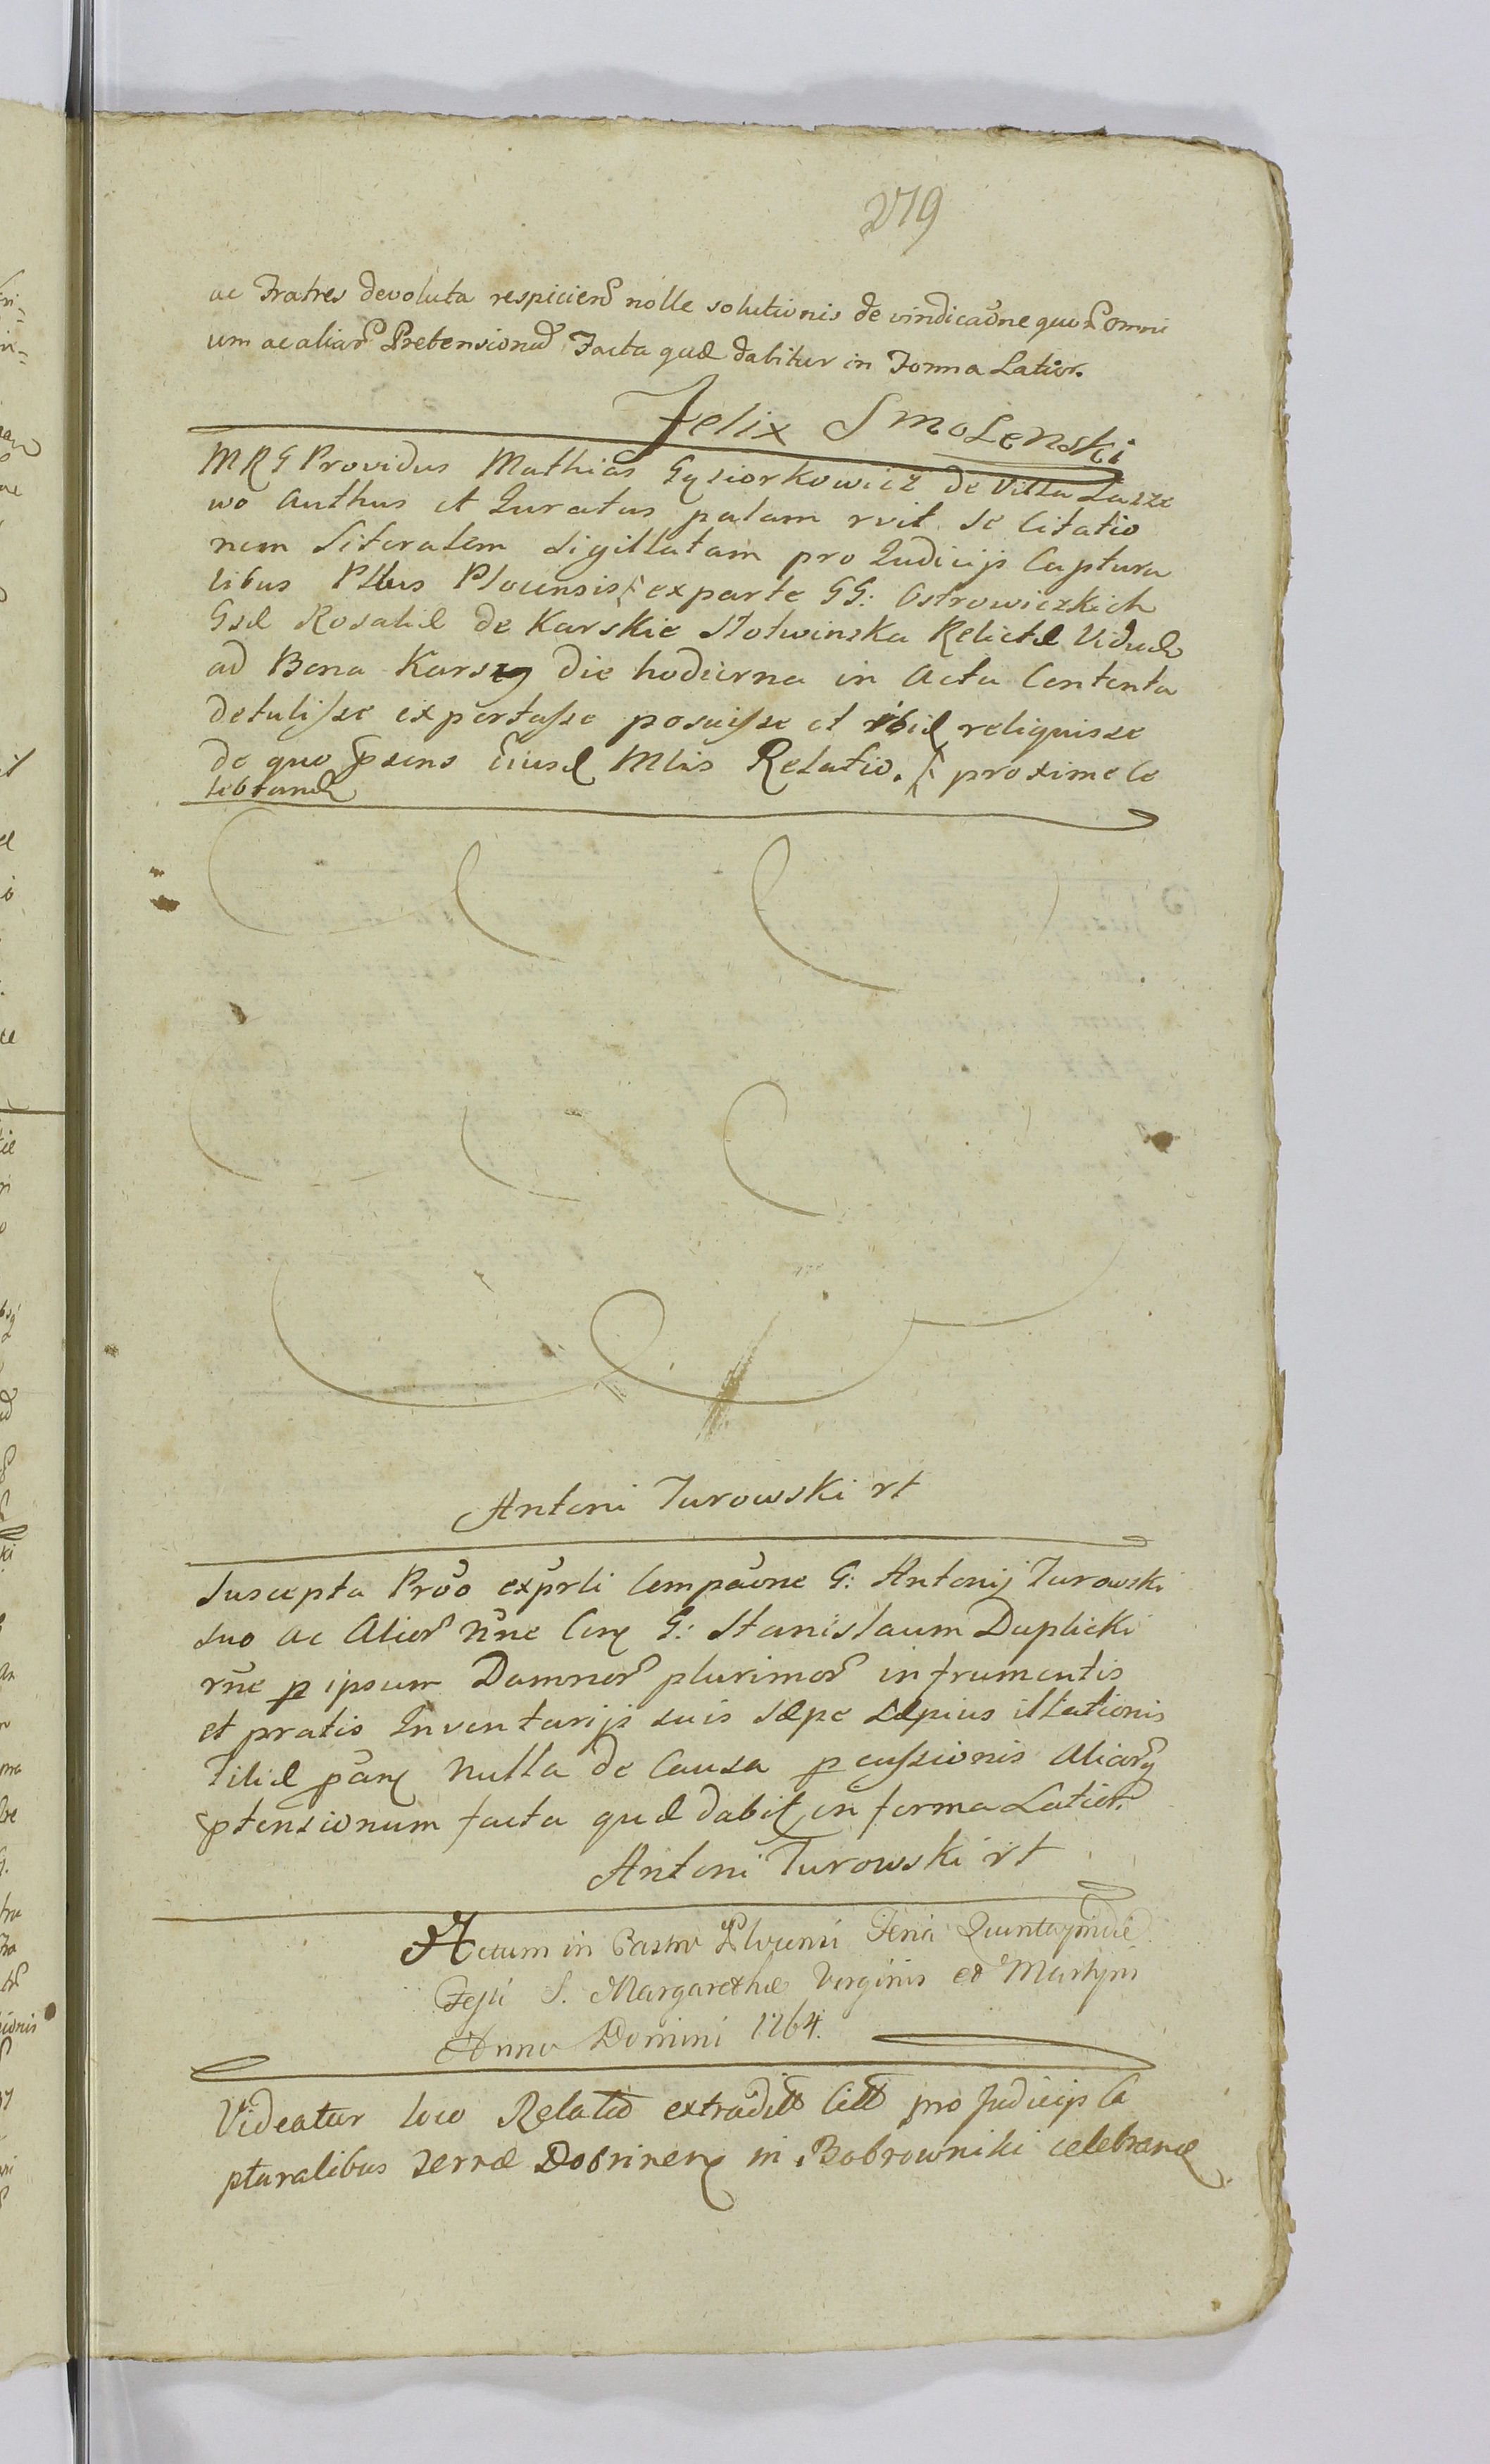 279
ac Fratres devoluta respiciend nolle solutionis de vindicaõne quor omni
um ac aliar Pretensionũ Facta quæ dabitur in Forma Latior.
Felix Smolenski
MRG Providus Mathias Gąsiorkowicz de Villa Lasze
wo Authus et Juratus palam rvit se Citatio
nem Literalem Sigillatam pro Judicijs Captura
libus Pltus Plocensis exparte GG: Ostrowiczkich
Gsæ Rosaliæ de Karskie Slotwinska Relictæ Viduæ
ad Bona Karsy die hodierna in Acta Contenta
detulisse exportasse posuisse et ibid reliquisse
de quo psens Eiusd Mlis Relatio. proxime Ce
lebrand
Antoni Turowski rt
Suscepta Prõo exprli Compaõne G: Antonij Turowski
suo ac Alior nne Cong G: Stanislaum Duplicki
rne p ipsum Damnor plurimor in frumentis
et pratis Inventarijs suis sæpe sæpius illationis
Filiæ nulla de Causa pcussionis Aliarq
ptensionum facta quæ dabit in forma Latior.
Antoni Turowski rt
Actum in Castro Plocensi Feria Quinta pridie
Festi S. Margarethæ Virginis et Martyris
Anno Domini 1764.
Videatur loco Relatio extradit Citt pro Judicijs Ca
pturalibus Terræ Dobrinen in Bobrowniki celebrand